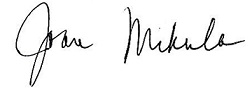 Joan Mikula